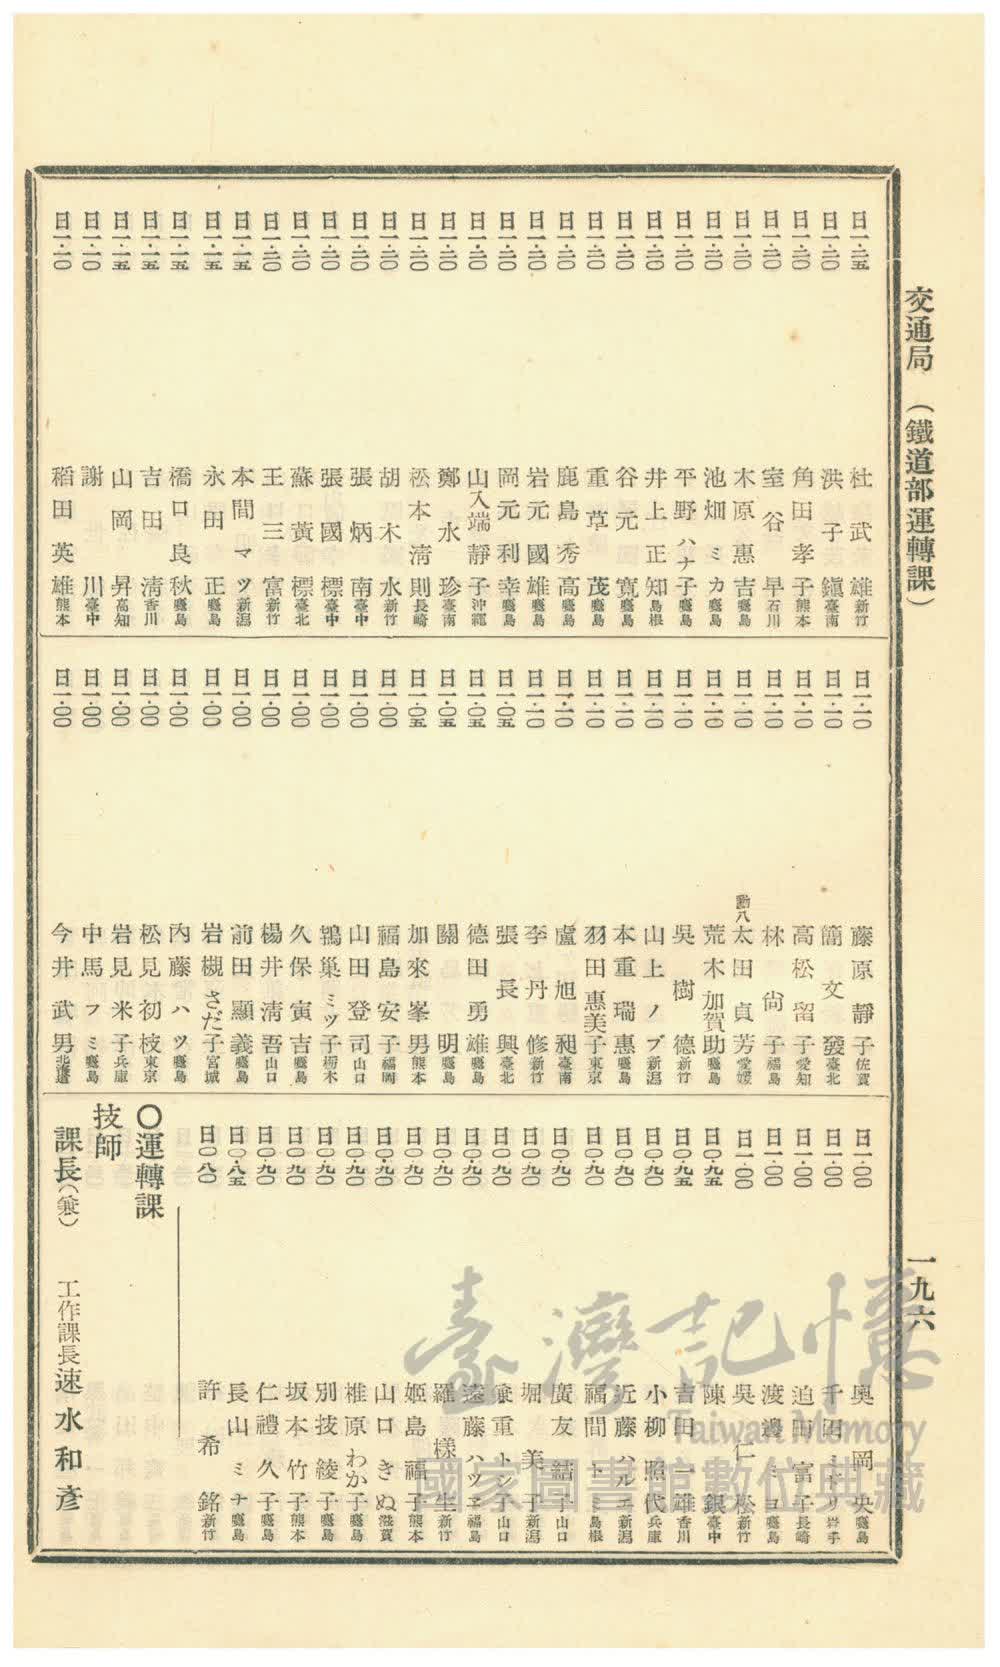 交通局　（鐵道部運轉課）
一九六
日一・二五　杜武雄　新竹
日一・二〇　洪子鎭　臺南
日一・二〇　角田孝子　熊本
日一・二〇　室谷早　石川
日一・二〇　木原惠吉　鹿兒島
日一・二〇　池畑ミカ　鹿兒島
日一・二〇　平野ハナ子　鹿兒島
日一・二〇　井上正知　島根
日一・二〇　谷元寬　鹿兒島
日一・二〇　重草茂　鹿兒島
日一・二〇　鹿島秀高　鹿兒島
日一・二〇　岩元國雄　鹿兒島
日一・二〇　岡元利幸　鹿兒島
日一・二〇　山入端靜子　沖繩
日一・二〇　鄭水珍　臺南
日一・二〇　松本淸則　長崎
日一・二〇　胡木水　新竹
日一・二〇　張炳南　臺中
日一・二〇　張國標　臺中
日一・二〇　蘇黃標　臺北
日一・二〇　王三富　新竹
日一・一五　本間マツ　新潟
日一・一五　永田正　鹿兒島
日一・一五　橋口良秋　鹿兒島
日一・一五　吉田淸　香川
日一・一五　山岡昇　高知
日一・一〇　謝川　臺中
日一・一〇　稻田英雄　熊本
日一・一〇　藤原靜子　佐賀
日一・一〇　簡文發　臺北
日一・一〇　高松留子　愛知
日一・一〇　林尙子　福島
日一・一〇　勳八　太田貞芳　愛媛
日一・一〇　荒木加賀助　鹿兒島
日一・一〇　吳樹德　新竹
日一・一〇　山上ノブ　新潟
日一・一〇　本重瑞惠　鹿兒島
日一・一〇　羽田惠美子　東京
日一・一〇　盧旭昶　臺南
日一・一〇　李丹修　新竹
日一・〇五　張長興　臺北
日一・〇五　德田勇雄　鹿兒島
日一・〇五　關明　鹿兒島
日一・〇五　加來峯男　熊本
日一・〇〇　福島安子　福岡
日一・〇〇　山田登司　山口
日一・〇〇　鴇巢ミツ子　栃木
日一・〇〇　久保寅吉　鹿兒島
日一・〇〇　楊井淸吾　山口
日一・〇〇　前田顯義　鹿兒島
日一・〇〇　岩槻さだ子　宮城
日一・〇〇　內藤ハツ　鹿兒島
日一・〇〇　松見初枝　東京
日一・〇〇　岩見米子　兵庫
日一・〇〇　中馬フミ　鹿兒島
日一・〇〇　今井武男　北海道
日一・〇〇　奧岡央　鹿兒島
日一・〇〇　千沼ミドリ　岩手
日一・〇〇　迫田富子　長崎
日一・〇〇　渡邊ミヨ　鹿兒島
日一・〇〇　吳仁松　新竹
日〇・九五　陳銀　臺中
日〇・九五　吉田一雄　香川
日〇・九〇　小柳照代　兵庫
日〇・九〇　近藤ハルエ　新潟
日〇・九〇　福間トミ　島根
日〇・九〇　廣友結子　山口
日〇・九〇　堀美子　新潟
日〇・九〇　兼重トシ子　山口
日〇・九〇　遠藤ハツヱ　福島
日〇・九〇　羅樣生　新竹
日〇・九〇　姬島福子　熊本
日〇・九〇　山口きぬ　滋賀
日〇・九〇　椎原わか子　鹿兒島
日〇・九〇　別技綾子　鹿兒島
日〇・九〇　坂本竹子　熊本
日〇・九〇　仁禮久子　鹿兒島
日〇・八五　長山ミナ　鹿兒島
日〇・八〇　許希銘　新竹
〇運轉課
技師
課長（兼）　工作課長　速水和彥
臺灣記憶
Taiwan Memory
國家圖書館數位典藏